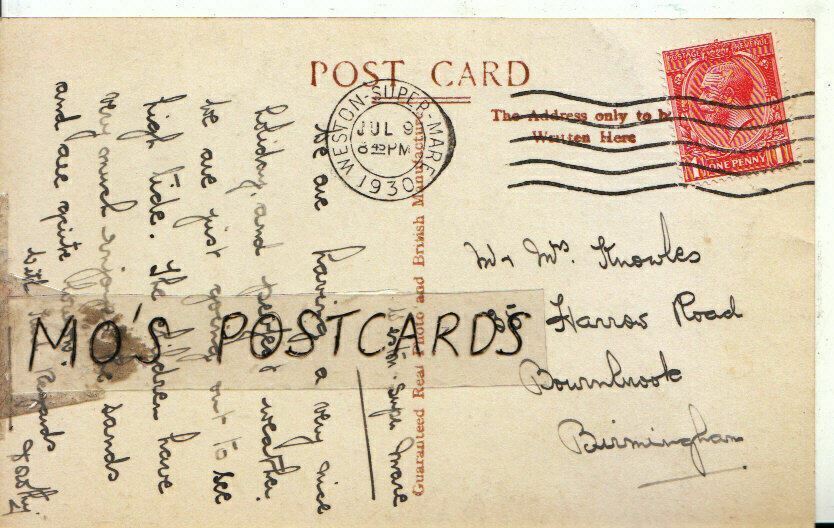 POST CARD
The Address only to be
Written Here
WESTON-SUPER-MARE
JUL 9
8 45 PM
1930
POSTAGE REVENUE
ONE PENNY
Guaranteed Real Photo and British Manufacture
Mr & Mrs. Knowles
Harrow Road
Bournbrook
Birmingham
Super Mare
We are having a very nice
holiday, and perfect weather.
We are just going out to see
high tide. The children have
very much enjoyed the sands
and are quite
with Regards
MO'S POSTCARDS